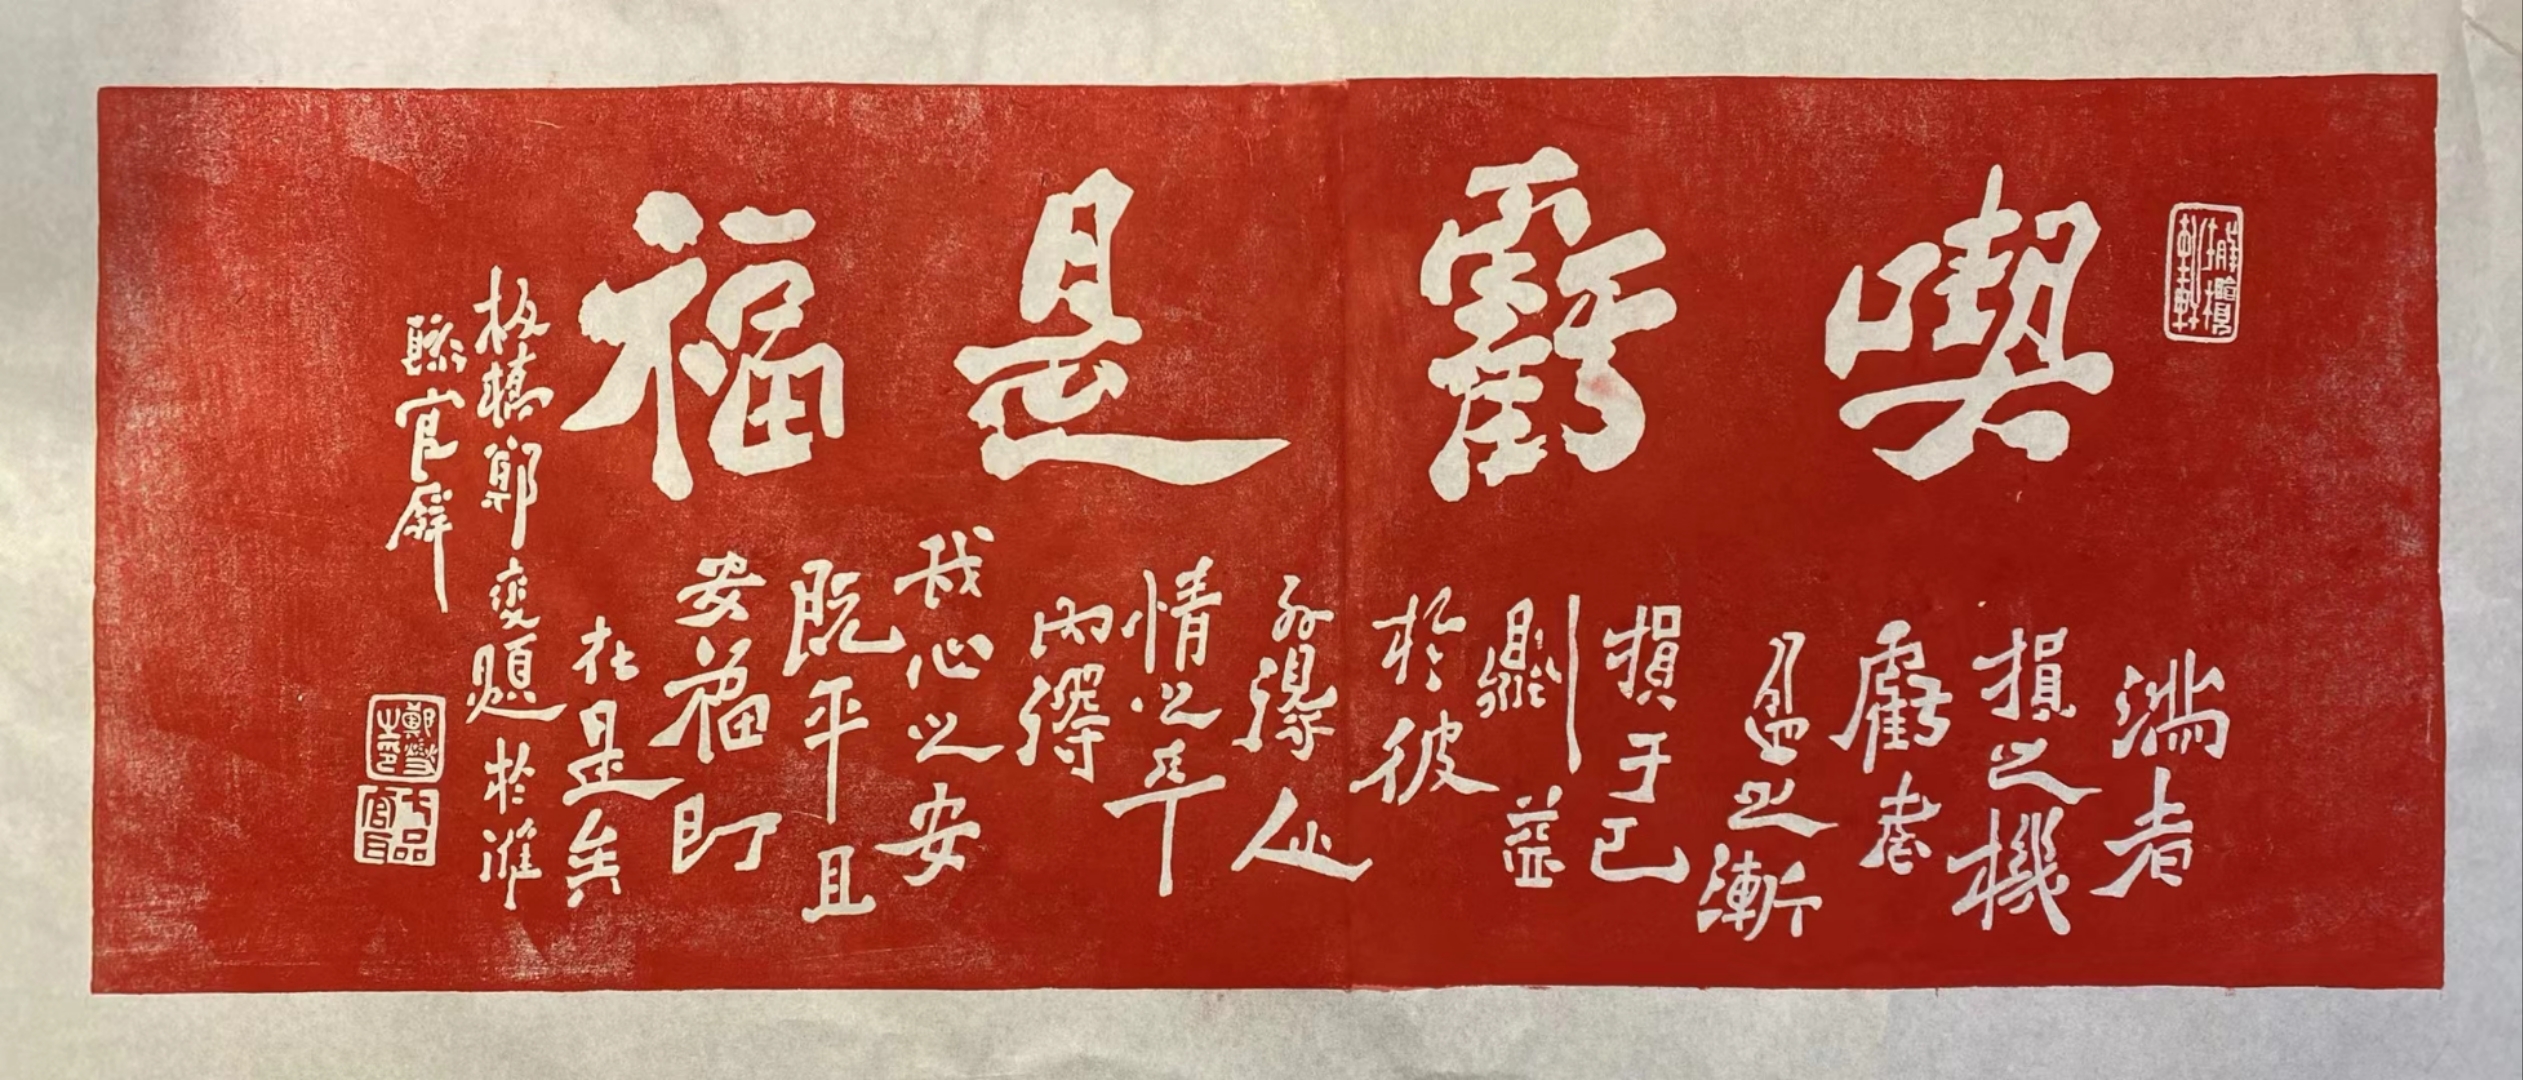 橄欖軒
喫虧是福
滿者
損之機
虧者
盈之漸
損于己
則益
於彼
外得人
情之平
內得
我心之安
既平且
安福即
在是矣
板橋鄭燮題於濰
縣官廨
鄭燮之印
七品官耳